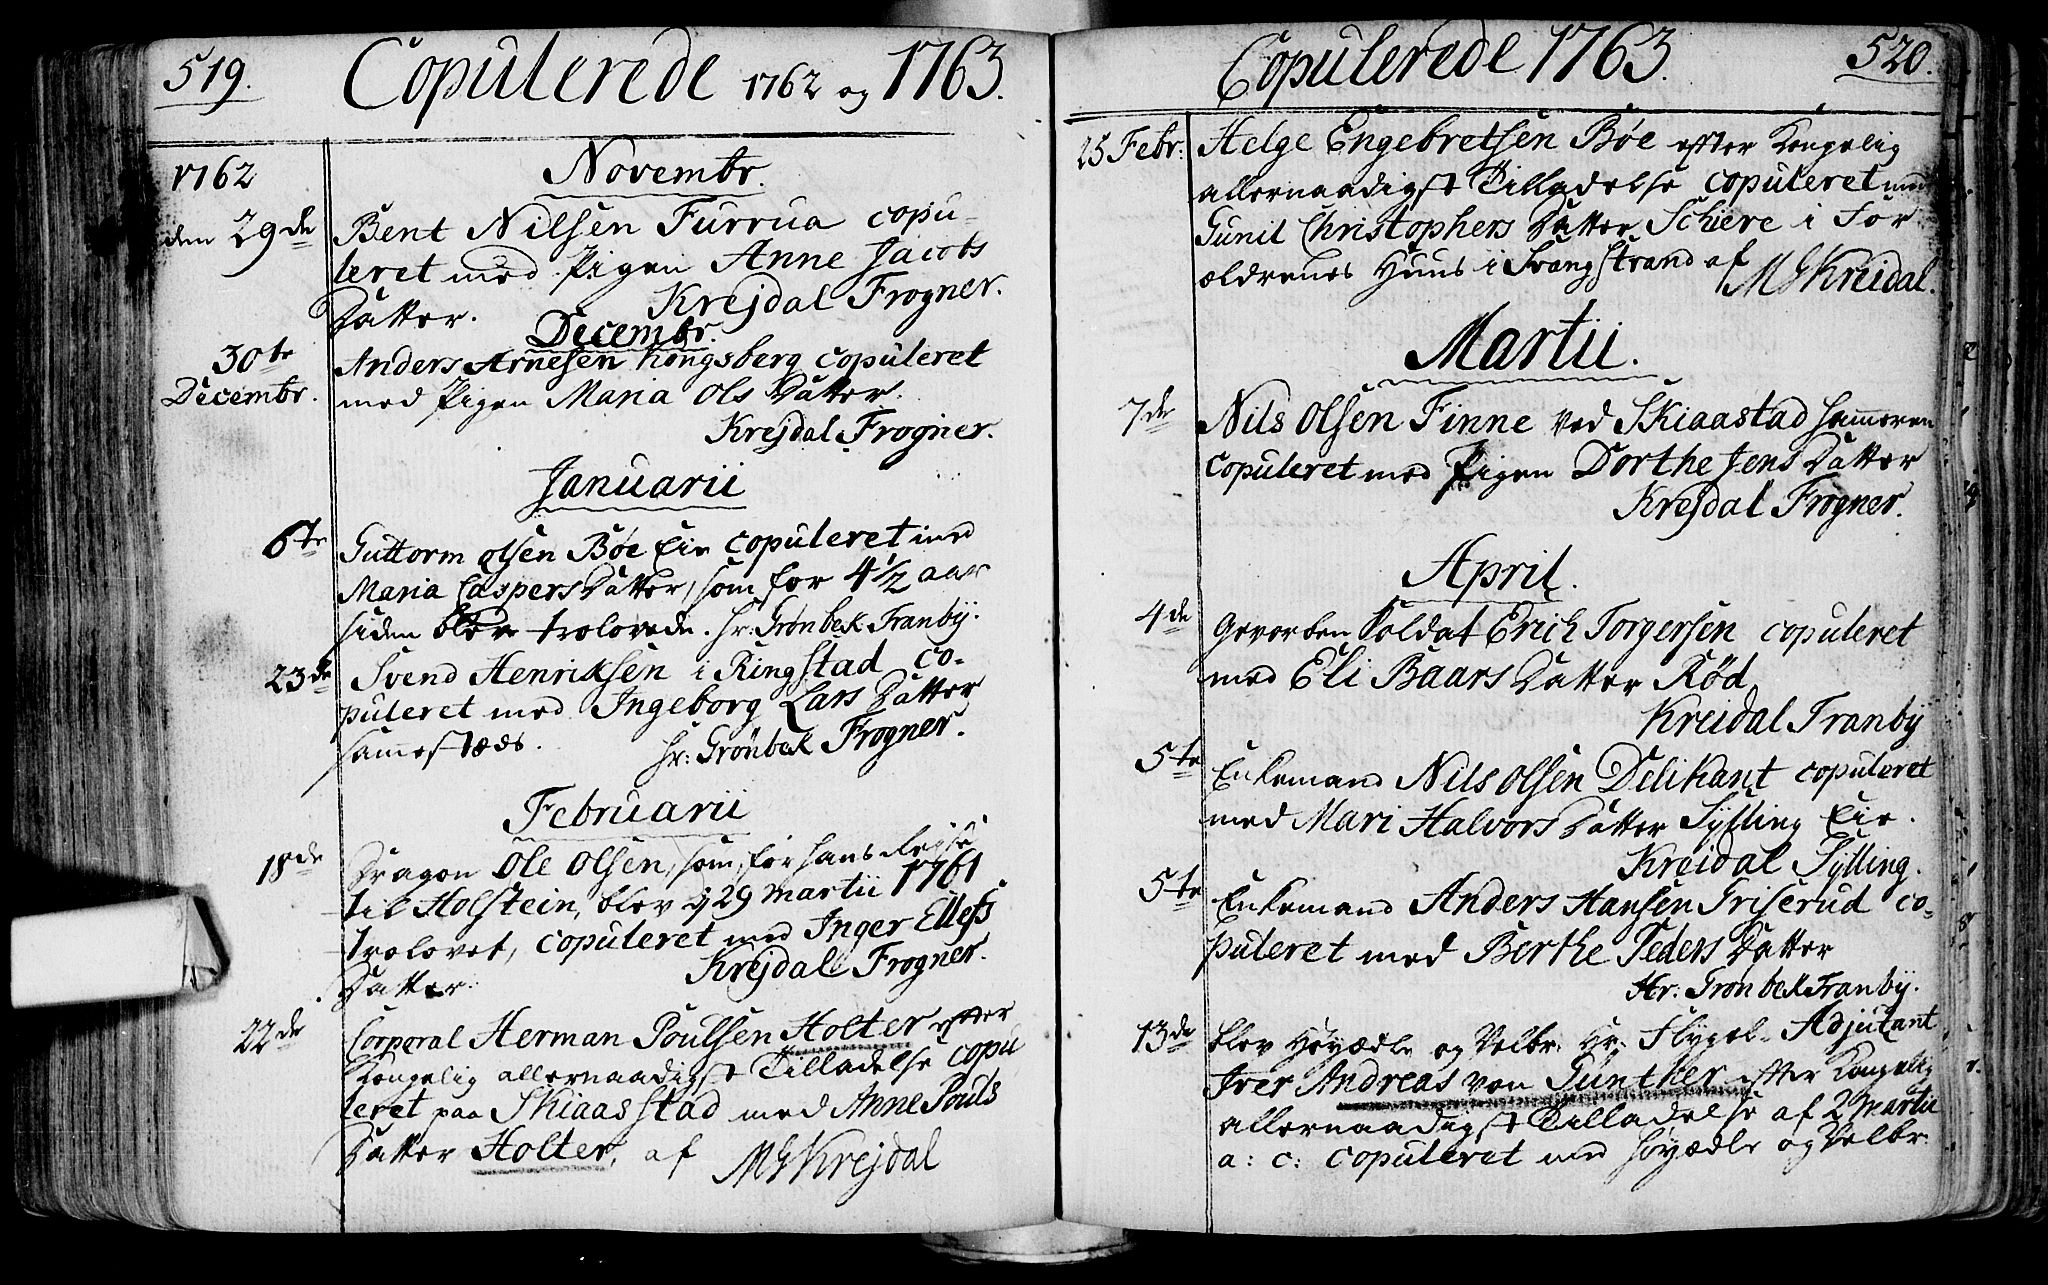 519.
Copulerede 1762 og 1763.
1762
Novembr.
den 29de
Bent Nilsen Furrua copu-
leret med Pigen Anne Jacobs
Datter. Krejdal Frogner.
Decembr.
30te Decembr.
Anders Arnesen Kongsberg copuleret
med Pigen Maria Ols Datter.
Krejdal Frogner.
Januarii
6te
Guttorm Olsen Bøe Eie copuleret med
Maria Caspers Datter, som for 4 1/2 aar
siden blev trolovede. Hr: Grönbek Tranbÿ.
23de
Svend Henriksen i Ringstad co-
puleret med Ingeborg Lars Datter
sammestæds. Hr: Grönbek Frogner.
Februarii
18de
Dragon Ole Olsen, som for hans Reise
til Holstein, blev d 29 Martii 1761
trolovet, copuleret med Inger Ellefs
Datter. Krejdal Frogner.
22de
Corporal Herman Poulsen Holter efter
Kongelig allernaadigst Tilladelse copu
leret paa Skiaasstad med Anne Pouls
Datter Holter, af MGKrejdal
Copulerede 1763.
520.
25 Febr:
Helge Engebretsen Bøe efter Kongelig
allernaadigst Tilladelse copuleret med
Gunil Christophers Datter Schiere i For
ældrenes Huus i Svangstrand af
MGKreidal.
Martii.
7de
Nils Olsen Finne ved Skiaastad Hammeren
copuleret med Pigen Dorthe Jens Datter
Krejdal Frogner.
April.
4de
Gevorben Soldat Erich Torgersen copuleret
med Eli Baars Datter Rød.
Kreidal Tranbÿ
5te
Enkemand Nils Olsen Delikant copuleret
med Mari Halvors Datter Sylling Eie.
Kreidal Sylling.
5te
Enkemand Anders Hansen Griserud co-
puleret med Berthe Peders Datter
Hr. Grönbek Tranbÿ.
13de
blev Höyædle og Velbr: Hr: Flygel-Adjutant
Iver Andreas von Günther efter Kongelig
allernaadigst Tilladelse af 2 Martii
a: c: copuleret med Höyædle og Velbr: